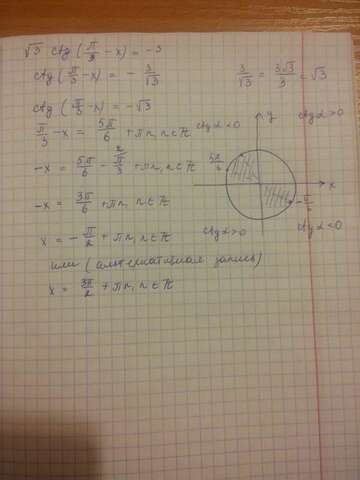 √3 ctg (π/3 − x) = −3
ctg (π/3 − x) = − 3/√3     3/√3 = 3√3/3 = √3
ctg (π/3 − x) = −√3
π/3 − x = 5π/6 + πn, n ∈ Z
−x = 5π/6 − π/3 + πn, n ∈ Z
−x = 3π/6 + πn, n ∈ Z
x = − π/2 + πn, n ∈ Z
или (альтернативная запись)
x = 3π/2 + πn, n ∈ Z
y
ctg α < 0
ctg α > 0
5π/6
x
−π/6
ctg α > 0
ctg α < 0